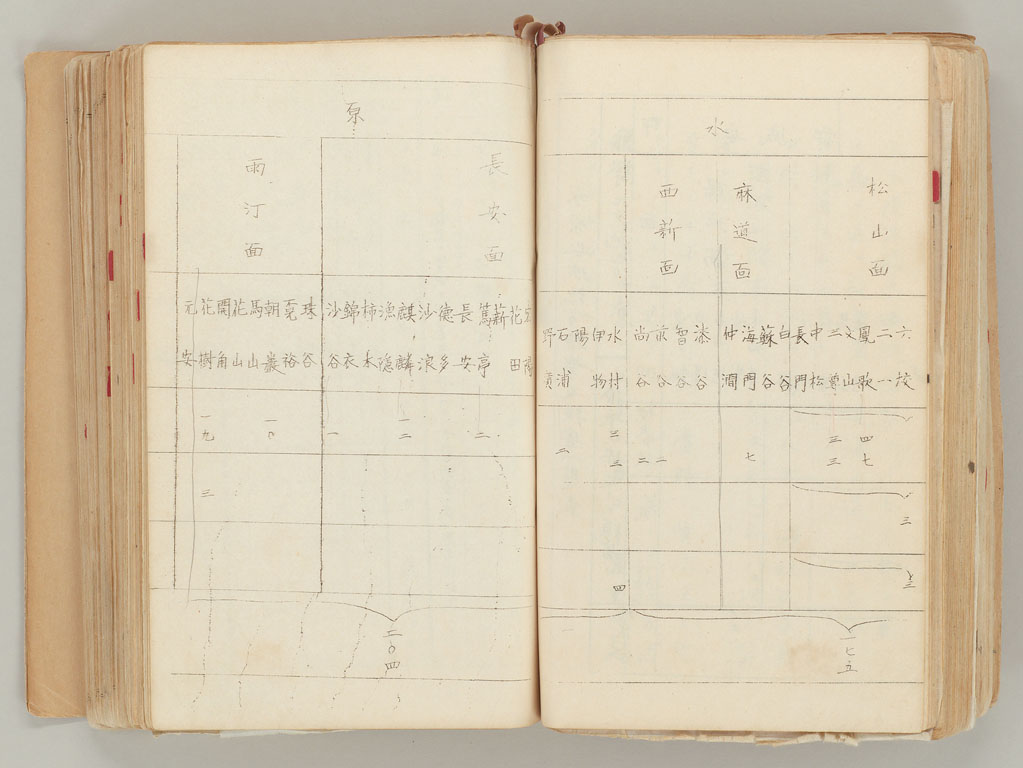 水
松山面
麻道面
西新面
鳳歌
文山
中松
長門
白谷
蘇谷
海門
仲澗
漆谷
智谷
尚谷
水村
伊物
陽
石浦
四七
三三
七
一
二
三三
二
三
四
一七五
長安面
雨汀面
花田
篤亭
長安
德多
沙浪
麒麟
漁隱
柿木
錦衣
沙谷
珠谷
朝巖
馬山
花山
開角
花樹
元安
二
一二
一
一九
三
二〇四